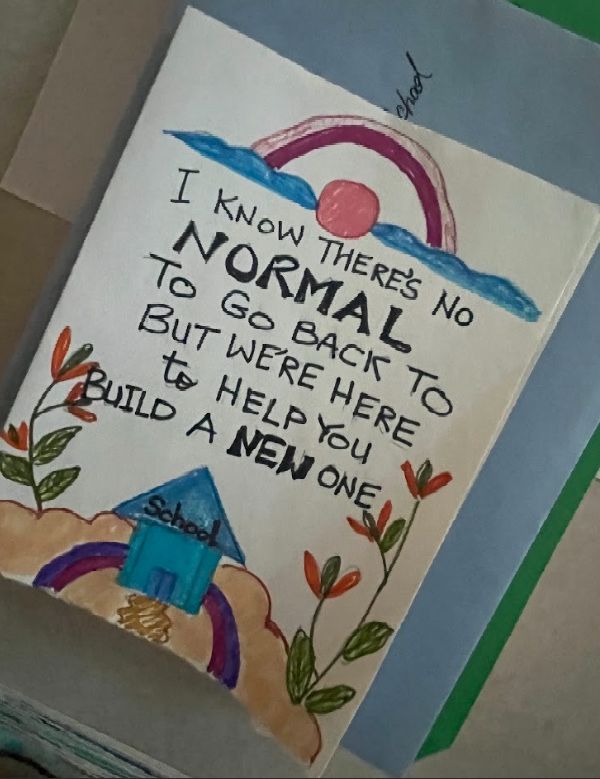 chool
I KNOW THERE'S NO
NORMAL
TO GO BACK TO
BUT WE'RE HERE
to HELP YOU
BUILD A NEW ONE
School